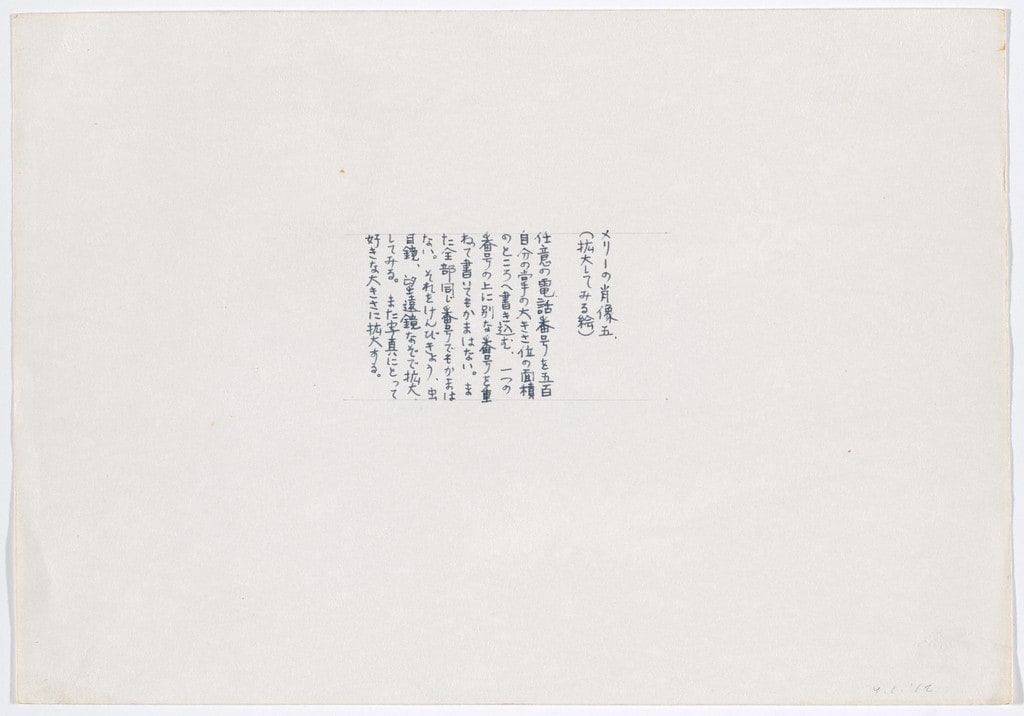 メリーの肖像五.
(拡大してみる絵)
任意の電話番号を五百
自分の掌の大きさ位の面積
のところへ書き込む、一つの
番号の上に別な番号を重
ねて書いてもかまはない。ま
た全部同じ番号でもかまは
ない。それをけんびきょう、虫
目鏡、望遠鏡なぞで拡大
してみる。また写真にとって
好きな大きさに拡大する。